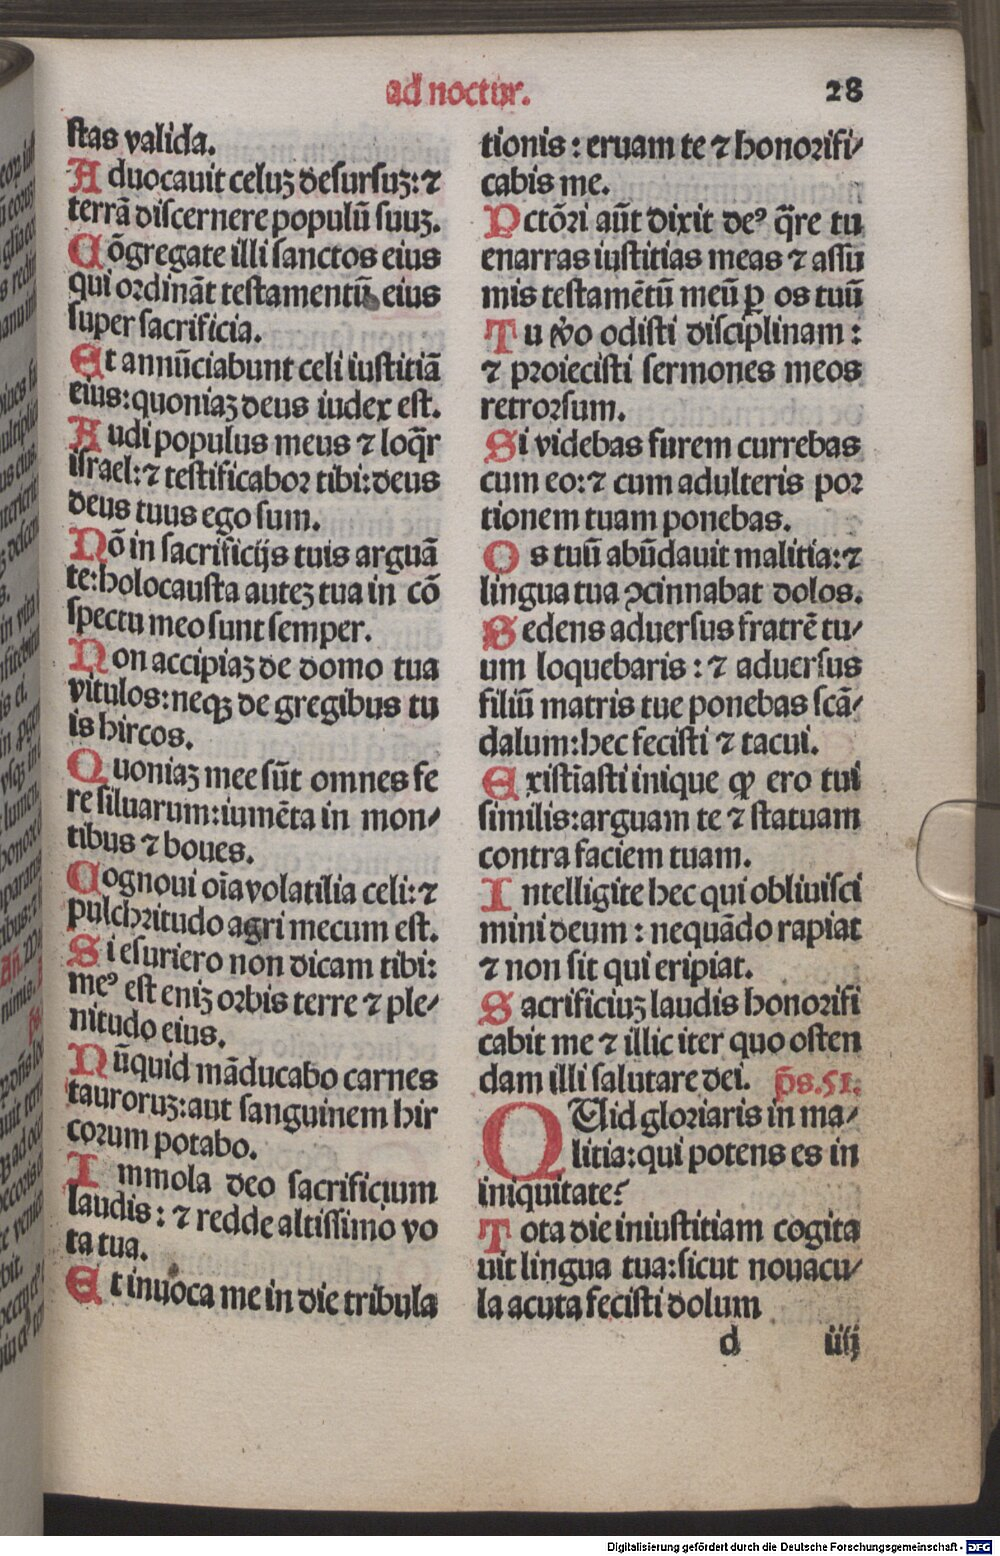 ad noctur.
28
stas valida.
Aduocauit celuʒ desursuʒ: ⁊
terrā discernere populū suuʒ.
Cōgregate illi sanctos eius
qui ordināt testamentū eius
super sacrificia.
Et annūciabunt celi iustitiā
eius: quoniaʒ deus iudex est.
Audi populus meus ⁊ loq̄r
israel: ⁊ testificabor tibi: deus
deus tuus ego sum.
Nō in sacrificijs tuis arguā
te: holocausta auteʒ tua in cō
spectu meo sunt semper.
Non accipiaʒ de domo tua
vitulos: neqʒ de gregibus tu
is hircos.
Quoniaʒ mee sūt omnes fe
re siluarum: iumēta in mon/
tibus ⁊ boues.
Cognoui oīa volatilia celi: ⁊
pulchritudo agri mecum est.
Si esuriero non dicam tibi:
meꝰ est eniʒ orbis terre ⁊ ple/
nitudo eius.
Nūquid māducabo carnes
tauroruʒ: aut sanguinem hir
corum potabo.
Immola deo sacrificium
laudis: ⁊ redde altissimo vo
ta tua.
Et inuoca me in die tribula
tionis: eruam te ⁊ honorifi/
cabis me.
Pctōri aūt dixit deꝰ q̄re tu
enarras iustitias meas ⁊ assū
mis testamētū meū ꝑ os tuū
Tu v̄o odisti disciplinam:
⁊ proiecisti sermones meos
retrorsum.
Si videbas furem currebas
cum eo: ⁊ cum adulteris por
tionem tuam ponebas.
Os tuū abūdauit malitia: ⁊
lingua tua ꝯcinnabat dolos.
Sedens aduersus fratrē tu/
um loquebaris: ⁊ aduersus
filiū matris tue ponebas scā/
dalum: hec fecisti ⁊ tacui.
Existīasti inique ꝙ ero tui
similis: arguam te ⁊ statuam
contra faciem tuam.
Intelligite hec qui obliuisci
mini deum: nequādo rapiat
⁊ non sit qui eripiat.
Sacrificiuʒ laudis honorifi
cabit me ⁊ illic iter quo osten
dam illi salutare dei. p̄s. 51.
QUid gloriaris in ma/
litia: qui potens es in
iniquitate?
Tota die iniustitiam cogita
uit lingua tua: sicut nouacu/
la acuta fecisti dolum
d iiij
Digitalisierung gefördert durch die Deutsche Forschungsgemeinschaft - DFG